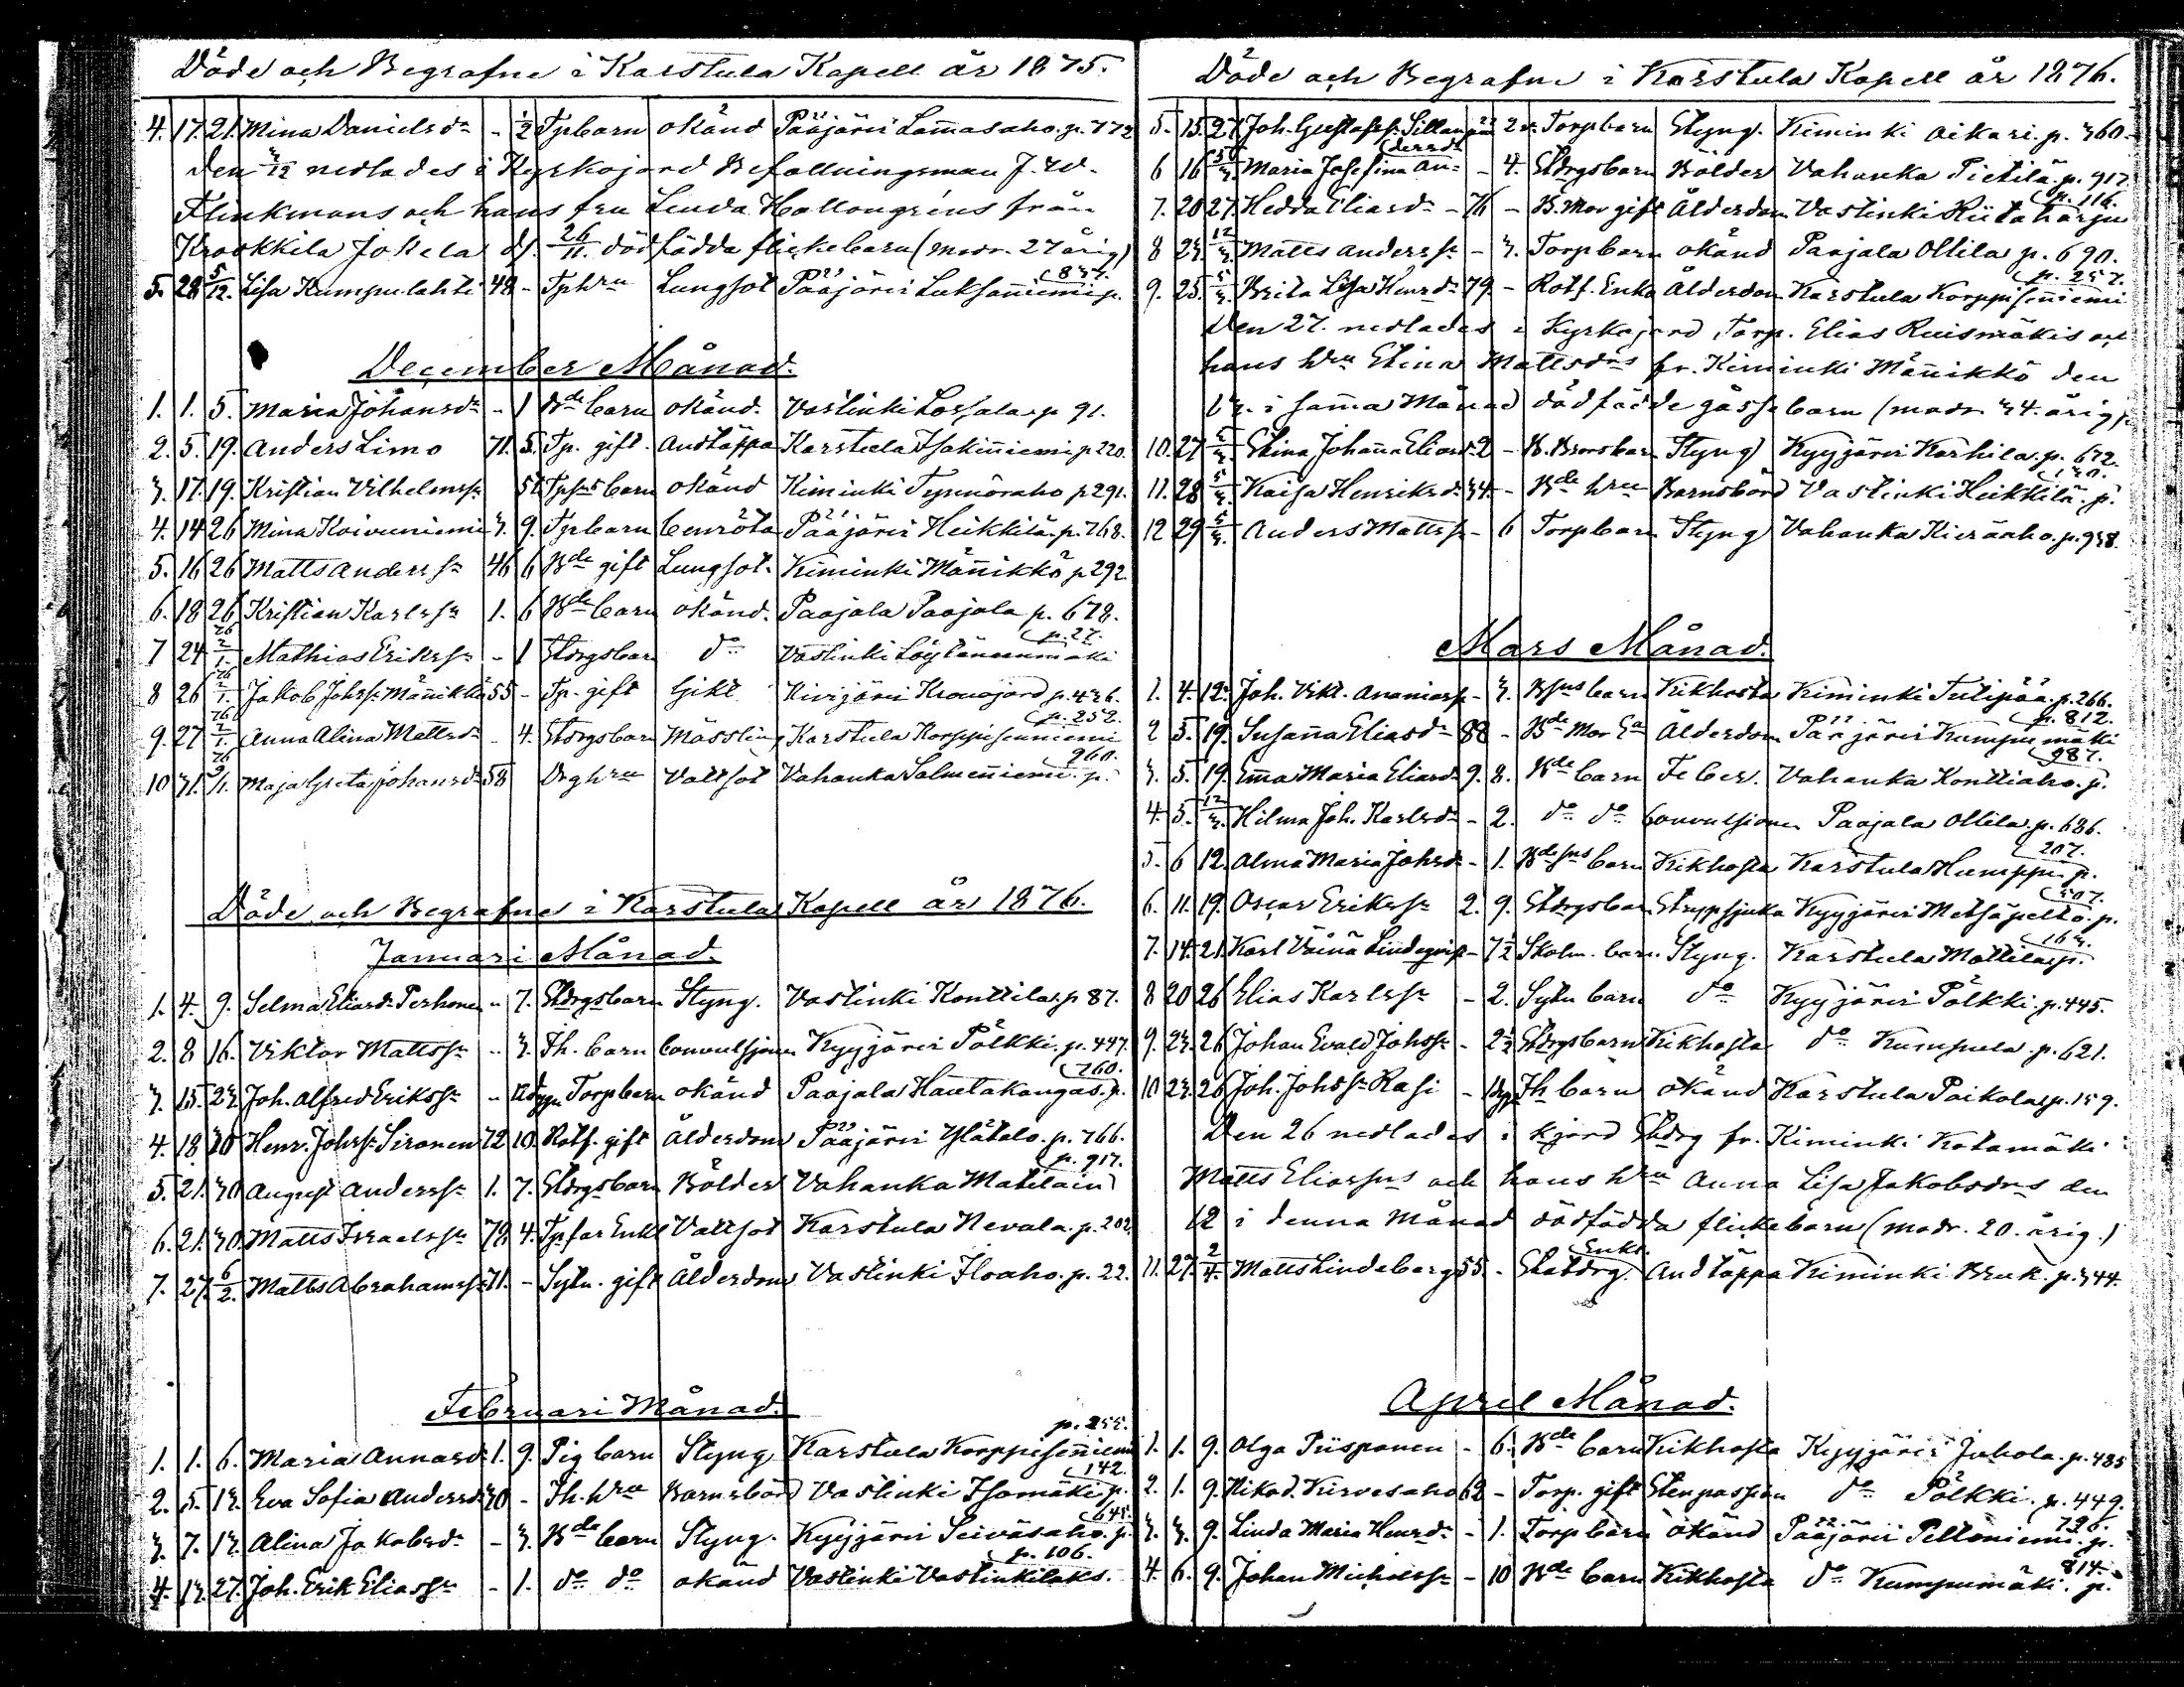 Döde och Begrafne i Karstula Kapell år 1875.
4. 17. 21. Mina Danielsdr - ½ Tpbarn okänd Pääjärvi Lamasaho. p. 772
Den 3/12 nedlades i Kyrkojord Befallningsman J. W.
Flinkmans och hans fru Linda Hallongréns från
Krookkila Jokela d. 26/11. dödfödda flickebarn (modr. 27 årig)
5. 28 5/12. Lisa Kumpulahti 48 - Tphru Lungsot Pääjärvi Luksanniemi p. 833.
December Månad.
1. 1. 5. Maria Johansdr - 1 Bde barn okänd. Vastinki Lossala. p 91.
2. 5. 19. Anders Limo 71. 5. Tp. gift. Andtäppa Karstula Isakinniemi p 220.
3. 17. 19. Kristian Vilhelmss Tpsns barn okänd Kiminki p 291.
4. 14 26 Mina Koivuniemi 3. 9. Tpbarn benröta Pääjärvi Heikkilä. p. 768.
5. 16 26 Matts Anderss 46 6 Bde gift Lungsot. Kiminki Männikkö p 292
6. 18 26 Kristian Karlss 1. 6 Bde barn okänd. Paajala Paajala p. 678.
7 24 76 2/1. Mathias Erikss - 1 Stdrgsbarn do Vastinki Löytänenmäki p. 27.
8 26 76 2/1. Jakob Johss. Männikkö 55 - Tp. gift Gikt Kivijärvi Kronojord p. 436.
9. 27 76 2/1. Anna Alina Mattsdr - 4. Stdrgsbarn Mässling Karstula Korppisenniemi p. 252.
10 31. 76 9/1. Maja Greta Johansdr 58 Drghru Vattsot Vahanka Salmenniemi. p. 960.
Döde och Begrafne i Karstula Kapell år 1876.
Januari Månad.
1. 4. 9. Selma Eliasdr. Perhonen - 7. Stdrgsbarn Styng. Vastinki Konttila. p 87.
2. 8 16. Viktor Mattss - 3. Th. barn Convulsjoner Kyyjärvi Pölkki. p. 447.
3. 15. 23 Joh. Alfred Erikss - 12 dgr Torpbarn okänd Paajala Hautakangas. p. 760.
4. 18 30 Henr. Johss. Sironen 72 10. Rotf. gift Ålderdom Pääjärvi Ylätalo. p. 766.
5. 21. 30 August Anderss 1. 7. Stdrgsbarn Bölder Vahanka Matilain p. 917.
6. 21. 30. Matts Israelss 78 4. Tpfar Enkl Vattsot Karstula Nevala. p. 202
7. 27. 6/2. Matts Abrahamss. 71. - Sytn. gift Ålderdom Vastinki Iloaho. p. 22.
Februari Månad.
1. 1. 6. Maria Annasdr 1. 9. Pig barn Styng Karstula Korppisenniemi p. 255.
2. 5. 13. Eva Sofia Andersdr 30 - Th. hru Barnsbörd Vastinki Isomäki p. 142.
3. 7. 13. Alina Jakobsdr - 3. Bde barn Styng. Kyyjärvi Seiväsaho. p. 645.
4. 13. 27. Joh. Erik Eliass - 1. do do okänd Vastinki Vastinkilaks. p. 106.
Döde och Begrafne i Karstula Kapell år 1876.
5. 15. 27. Joh. Gustafss. Sillanpää 2 v. Torpbarn Styng. Kiminki Aikari. p. 360.
6 16 5/3. Maria Josefina Andersdr - 4. Stdrgsbarn Bölder Vahanka Pietilä. p. 917.
7. 20 27. Hedda Eliasdr - 76 - B. Mor gift Ålderdom Vastinki Riitaharju p. 116.
8 23 12/3. Matts Anderss - 3. Torpbarn okänd Paajala Ollila p. 690.
9. 25. 5/3. Brita Lisa Henrdr 79. - Rotf. Enka Ålderdom Karstula Korppisenniemi p. 257.
Den 27. nedlades i Kyrkojord Torp. Elias Ruismäkis och
hans hru Stina Mattsdrs fr. Kiminki Männikkö den
13. i samma Månad dödfödde gossebarn (modr 34. årig).
10. 27 5/3. Stina Johanna Eliasdr 2 - Styng Kyyjärvi Karhila. p. 672.
11. 28 5/3. Kaisa Henriksdr. 34. - Bde hru Barnsbörd Vastinki Heikkilä. p. 130.
12 29 5/3. Anders Mattss - 6 Torpbarn Styng Vahanka Kieräaho. p. 938.
Mars Månad.
1. 4. 12. Joh. Vikt. Ananiass - 3. Bsns barn Kikhosta Kiminki Tulipää. p. 266.
2 5. 19. Susanna Eliasdr 88 - Bde Mor Ea Ålderdom Pääjärvi Kumpumäki p. 812.
3. 5. 19. Emma Maria Eliasdr 9. 8. Bde barn Feber. Vahanka Konttiaho. p. 987.
4. 5. 12/3. Hilma Joh. Karlsdr - 2. do do Convulsioner Paajala Ollila. p. 686.
5. 6 12. Alma Maria Johsdr - 1. Bdesns barn Kikhosta Karstula Humppi p. 207.
6. 11. 19. Oscar Erikss 2. 9. Stdrgsbarn Strypsjuka Kyyjärvi Metsäpelto. p. 507.
7. 14. 21. Karl Väinä Lindeqvist - 7½ Skolm. barn. Styng. Karstula Mattila p. 163.
8 20 26 Elias Karlss - 2. Sytn barn do Kyyjärvi Pölkki. p. 445.
9. 23. 26 Johan Evald Johss - 2½ Stdrgsbarn Kikhosta do Kumpula p. 621.
10 23. 26 Joh. Johss Rasi - Th barn okänd Karstula Paikola p. 159.
Den 26 nedlades i kjord Stdrg fr. Kiminki Kotamäki
Matts Eliassns och hans hru Anna Lisa Jakobsdrs den
12 i denna Månad dödfödda flickebarn (modr. 20. årig.)
11. 27. 2/4. Matts Lindeberg 55 - Statdrg. Enkl. Andtäppa Kiminki Bruk. p. 344.
April Månad.
1. 1. 9. Olga Piispanen - 6. Bde barn Kikhosta Kyyjärvi Jokola. p. 485
2. 1. 9. Nikod. Kirvesaho 62 - Torp. gift Stenpassion do Pölkki. p. 449.
3. 3. 9. Linda Maria Henrdr - 1. Torpbarn okänd Pääjärvi Peltoniemi. p. 796.
4. 6. 9. Johan Michelss - 10 Bde barn Kikhosta do Kumpumäki. p. 814.